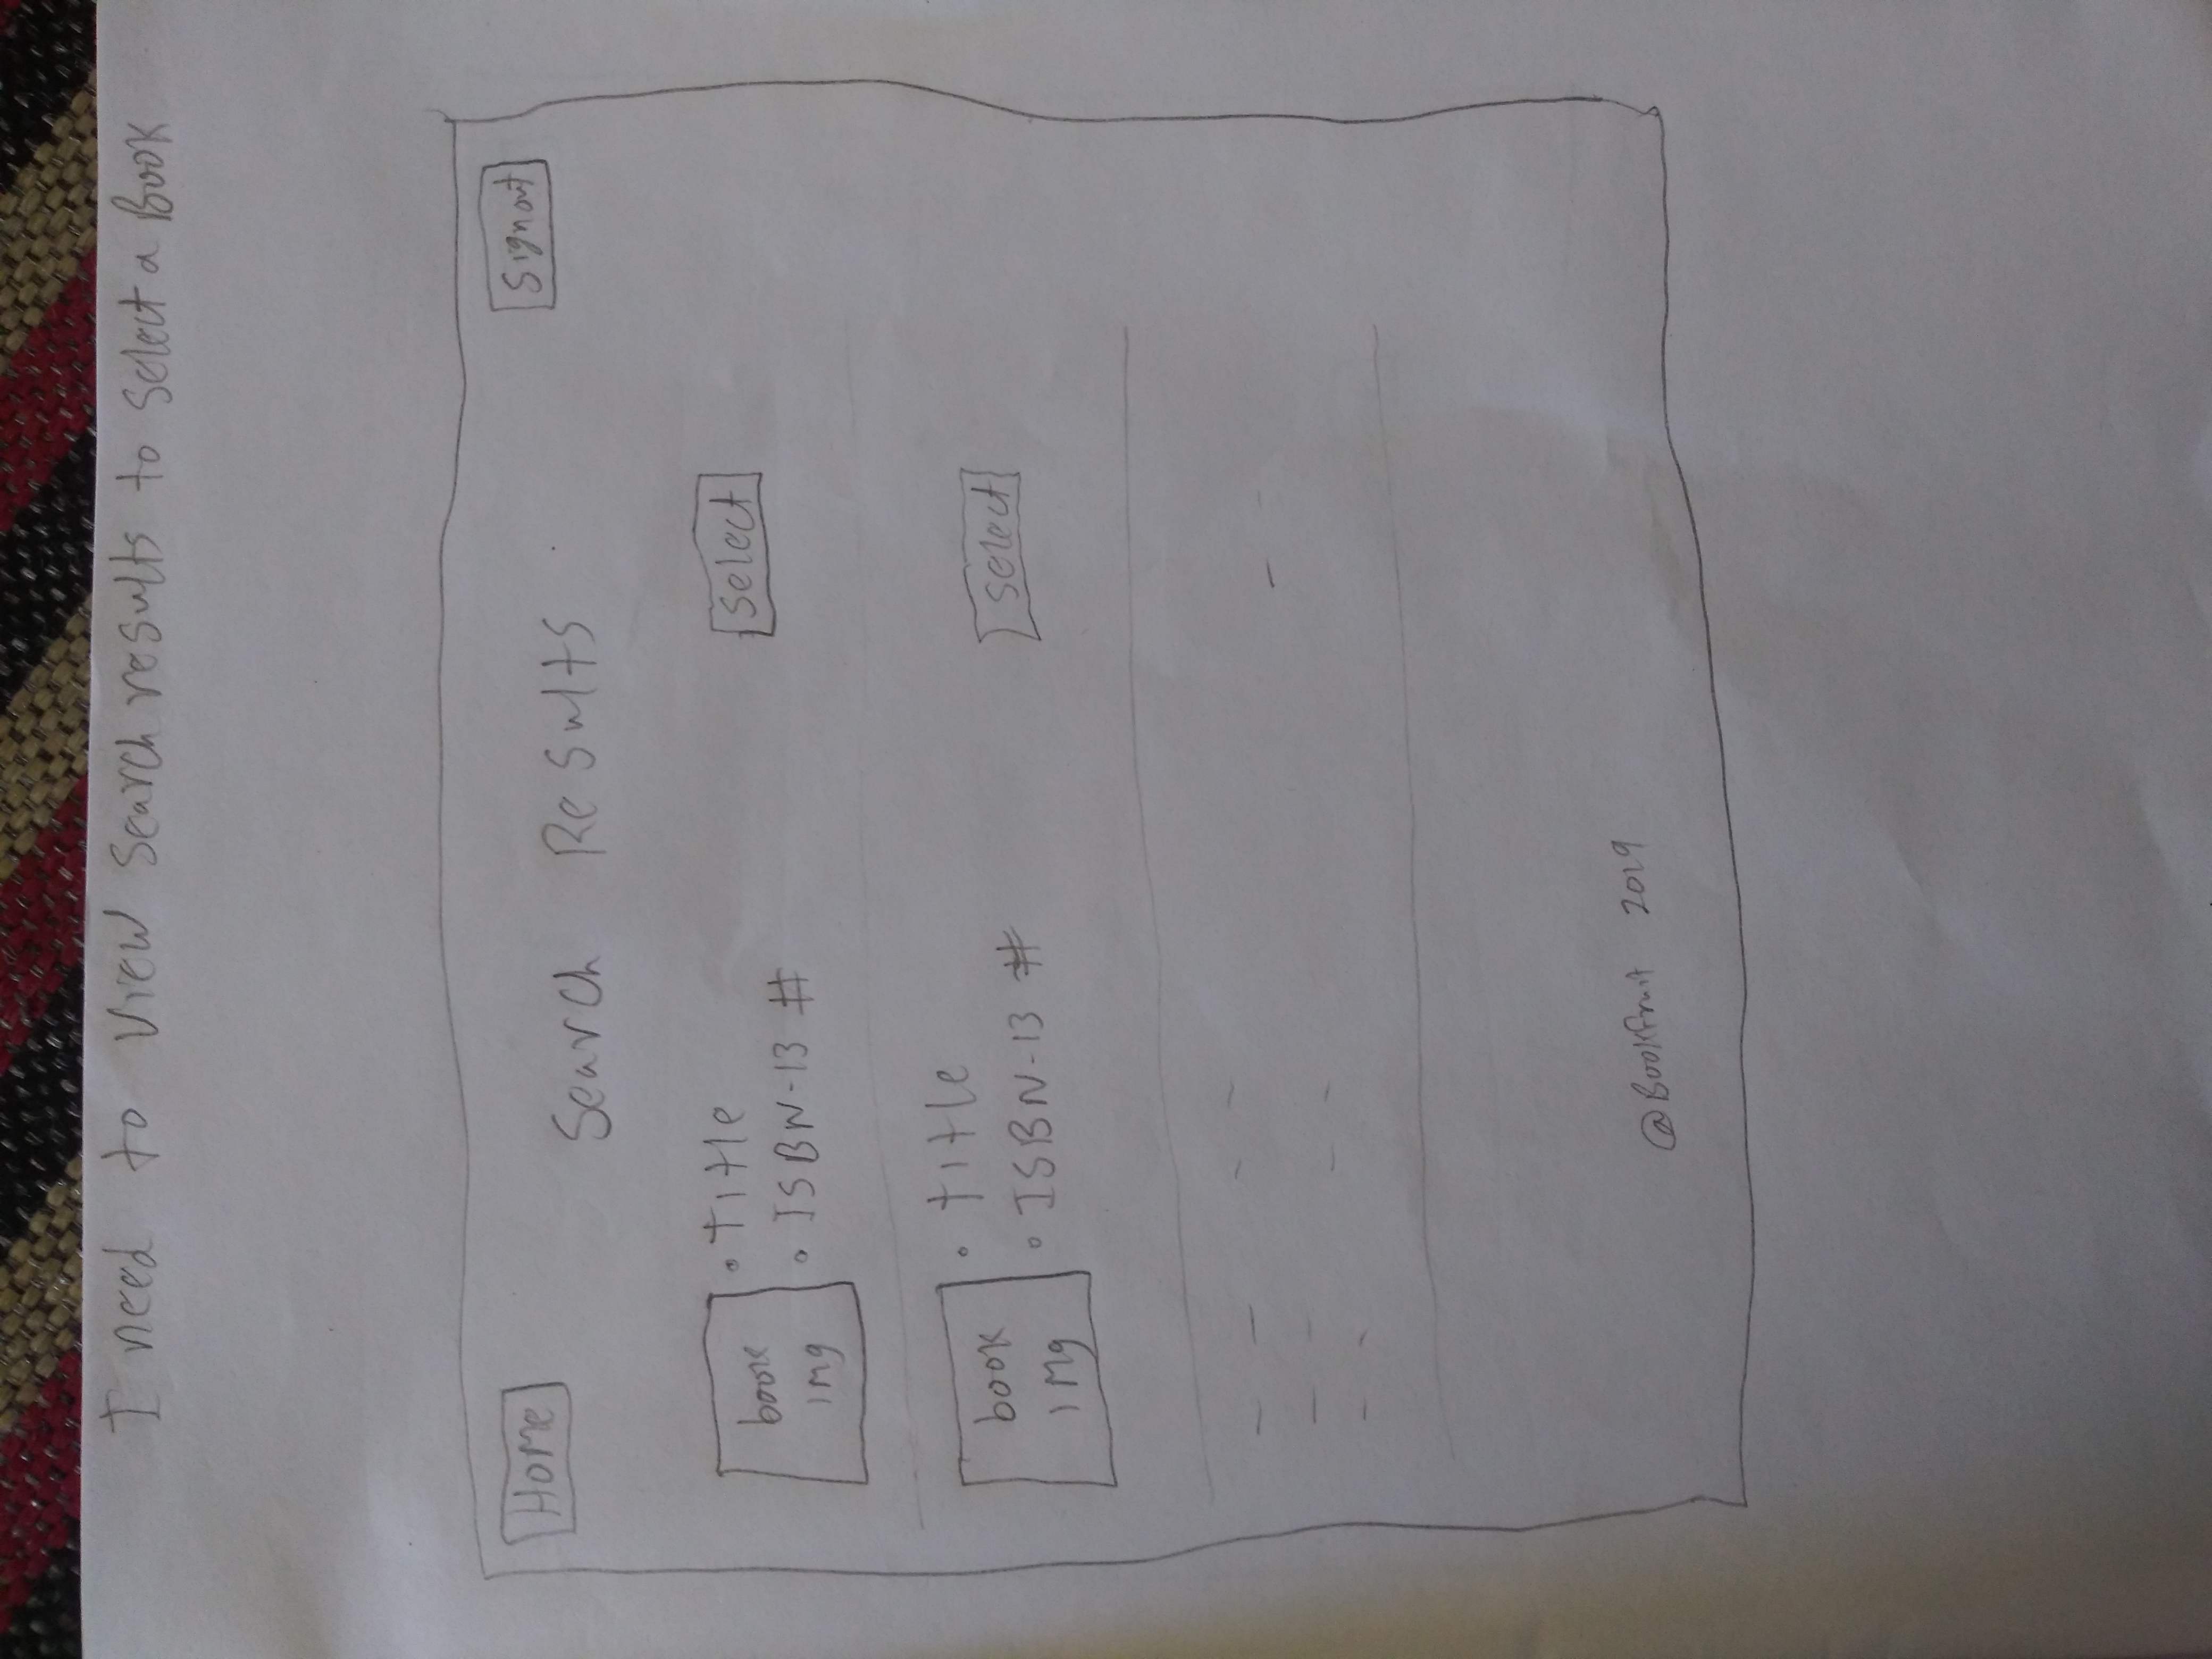 I need to view search results to select a Book
Home
Signout
Search Results
book
img
• title
• ISBN-13 #
select
book
img
• title
• ISBN-13 #
select
@BookFruit 2019